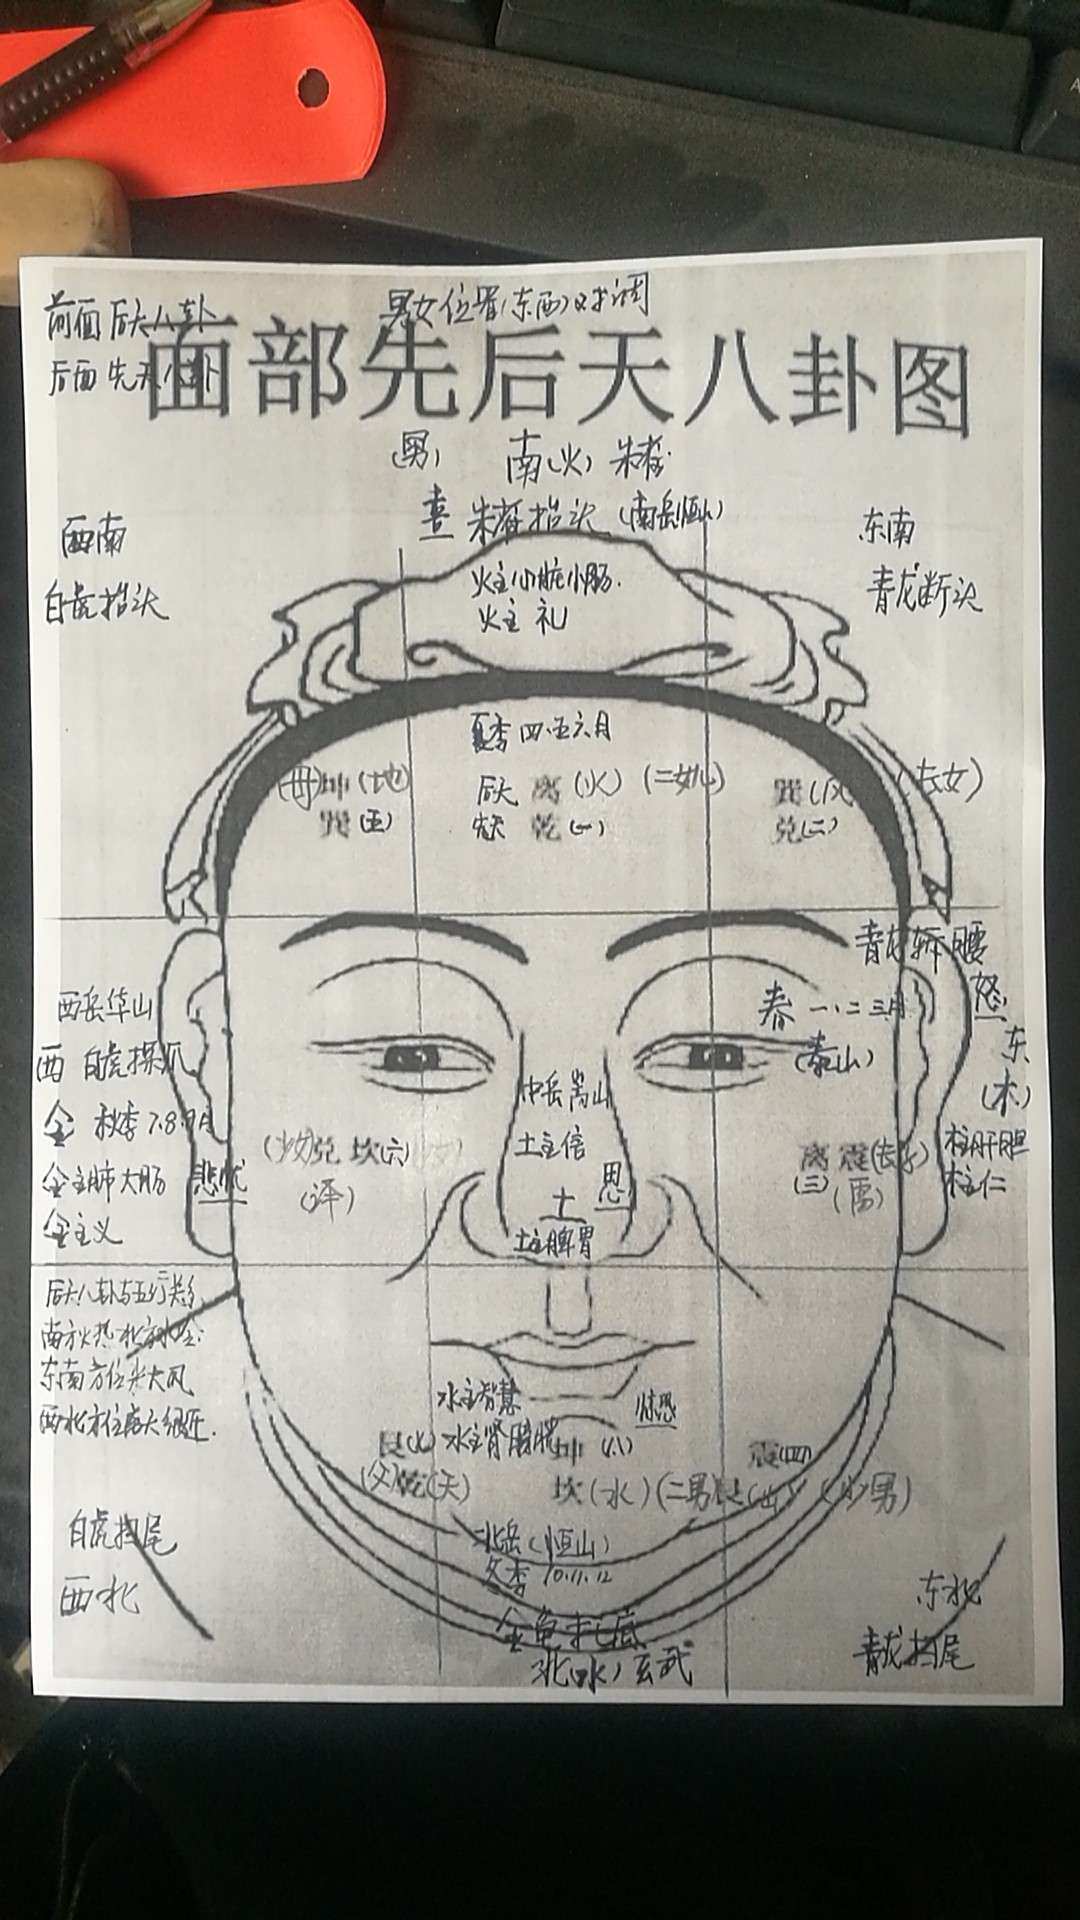 前面后天八卦 男女位置(东西)对调
后面先天八卦
面部先后天八卦图
(男) 南(火) 朱雀
喜 朱雀抬头 (南岳恒山)
西南 东南
白虎抬头 青龙断头
火主心脏小肠.
火主 礼
夏季四.五六月
(母)坤(地) 后天 离(火)(二女) 巽(风) (长女)
巽(五) 先天 乾(一) 兑(二)
青龙斩腰
怒
西岳华山 春 一、二三月
西 白虎探爪 (泰山) 东
中岳嵩山 (木)
金 秋季7.8.9月
(少女)兑 坎(六) 土主信 离 震(长子) 木主肝胆
金主肺大肠 悲忧 思 (三) (雷) 木主仁
(泽) 土
金主义 土主脾胃
后天八卦与五行关系
南方火热北方水冷.
东南方位来大风
西北方位
水主智慧 惊恐
艮(七) 水主肾膀胱 坤(八) 震(四)
(父)乾(天) 坎(水)(二男) 艮(山) (少男)
白虎扫尾 北岳(恒山)
冬季 10.11.12
西北 东北
金龟 底
北(水)玄武 青龙扫尾